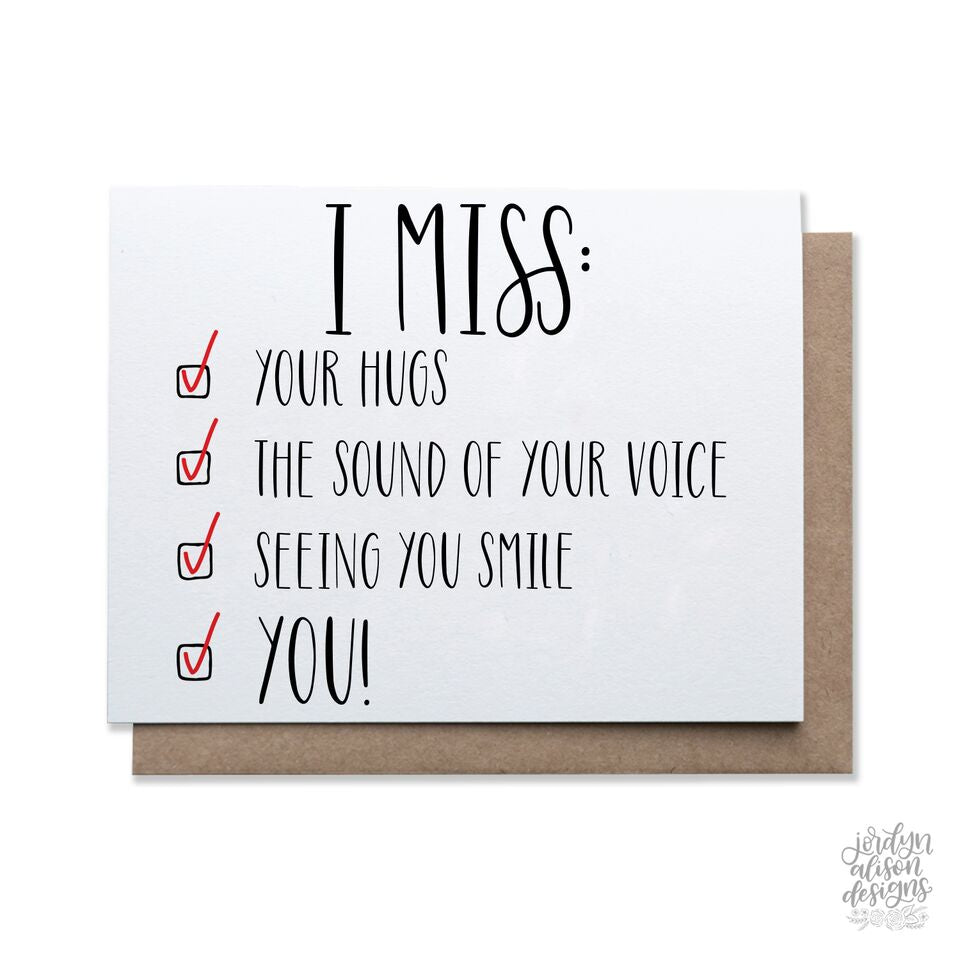 I MISS:
YOUR HUGS
THE SOUND OF YOUR VOICE
SEEING YOU SMILE
YOU!
jordyn
alison
designs